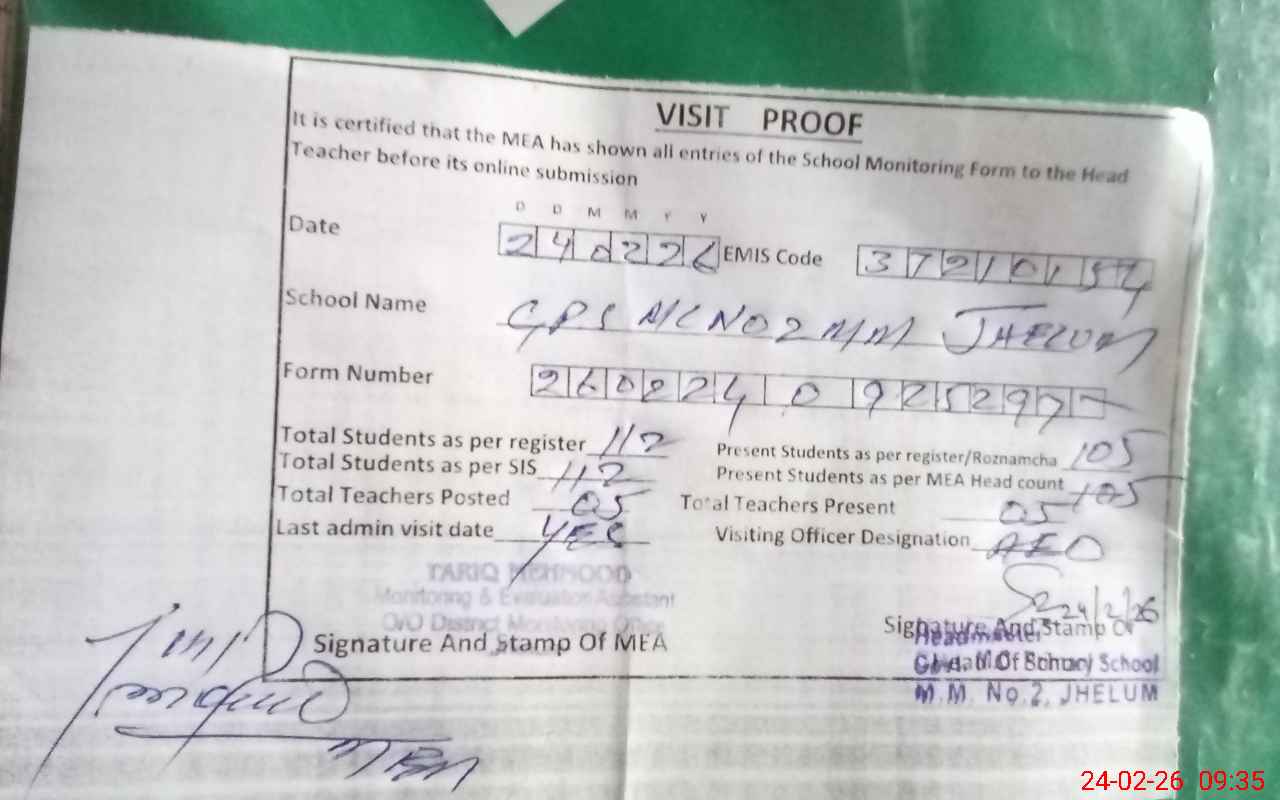 VISIT PROOF
It is certified that the MEA has shown all entries of the School Monitoring Form to the Head
Teacher before its online submission
D D M M Y Y
Date 240226 EMIS Code 37210154
School Name GPS M/C NO 2 M/M JHELUM
Form Number 260224 0925297
Total Students as per register 112 Present Students as per register/Roznamcha 105
Total Students as per SIS 112 Present Students as per MEA Head count 105
Total Teachers Posted 05 Total Teachers Present 05
Last admin visit date YES Visiting Officer Designation AEO
TARIQ MEHMOOD
Monitoring & Evaluation Assistant
O/O District Monitoring Office
24/2/26
Signature And Stamp Of MEA Signature And Stamp Of
Headmaster
Head Of School
M.M. No.2, JHELUM
24-02-26 09:35